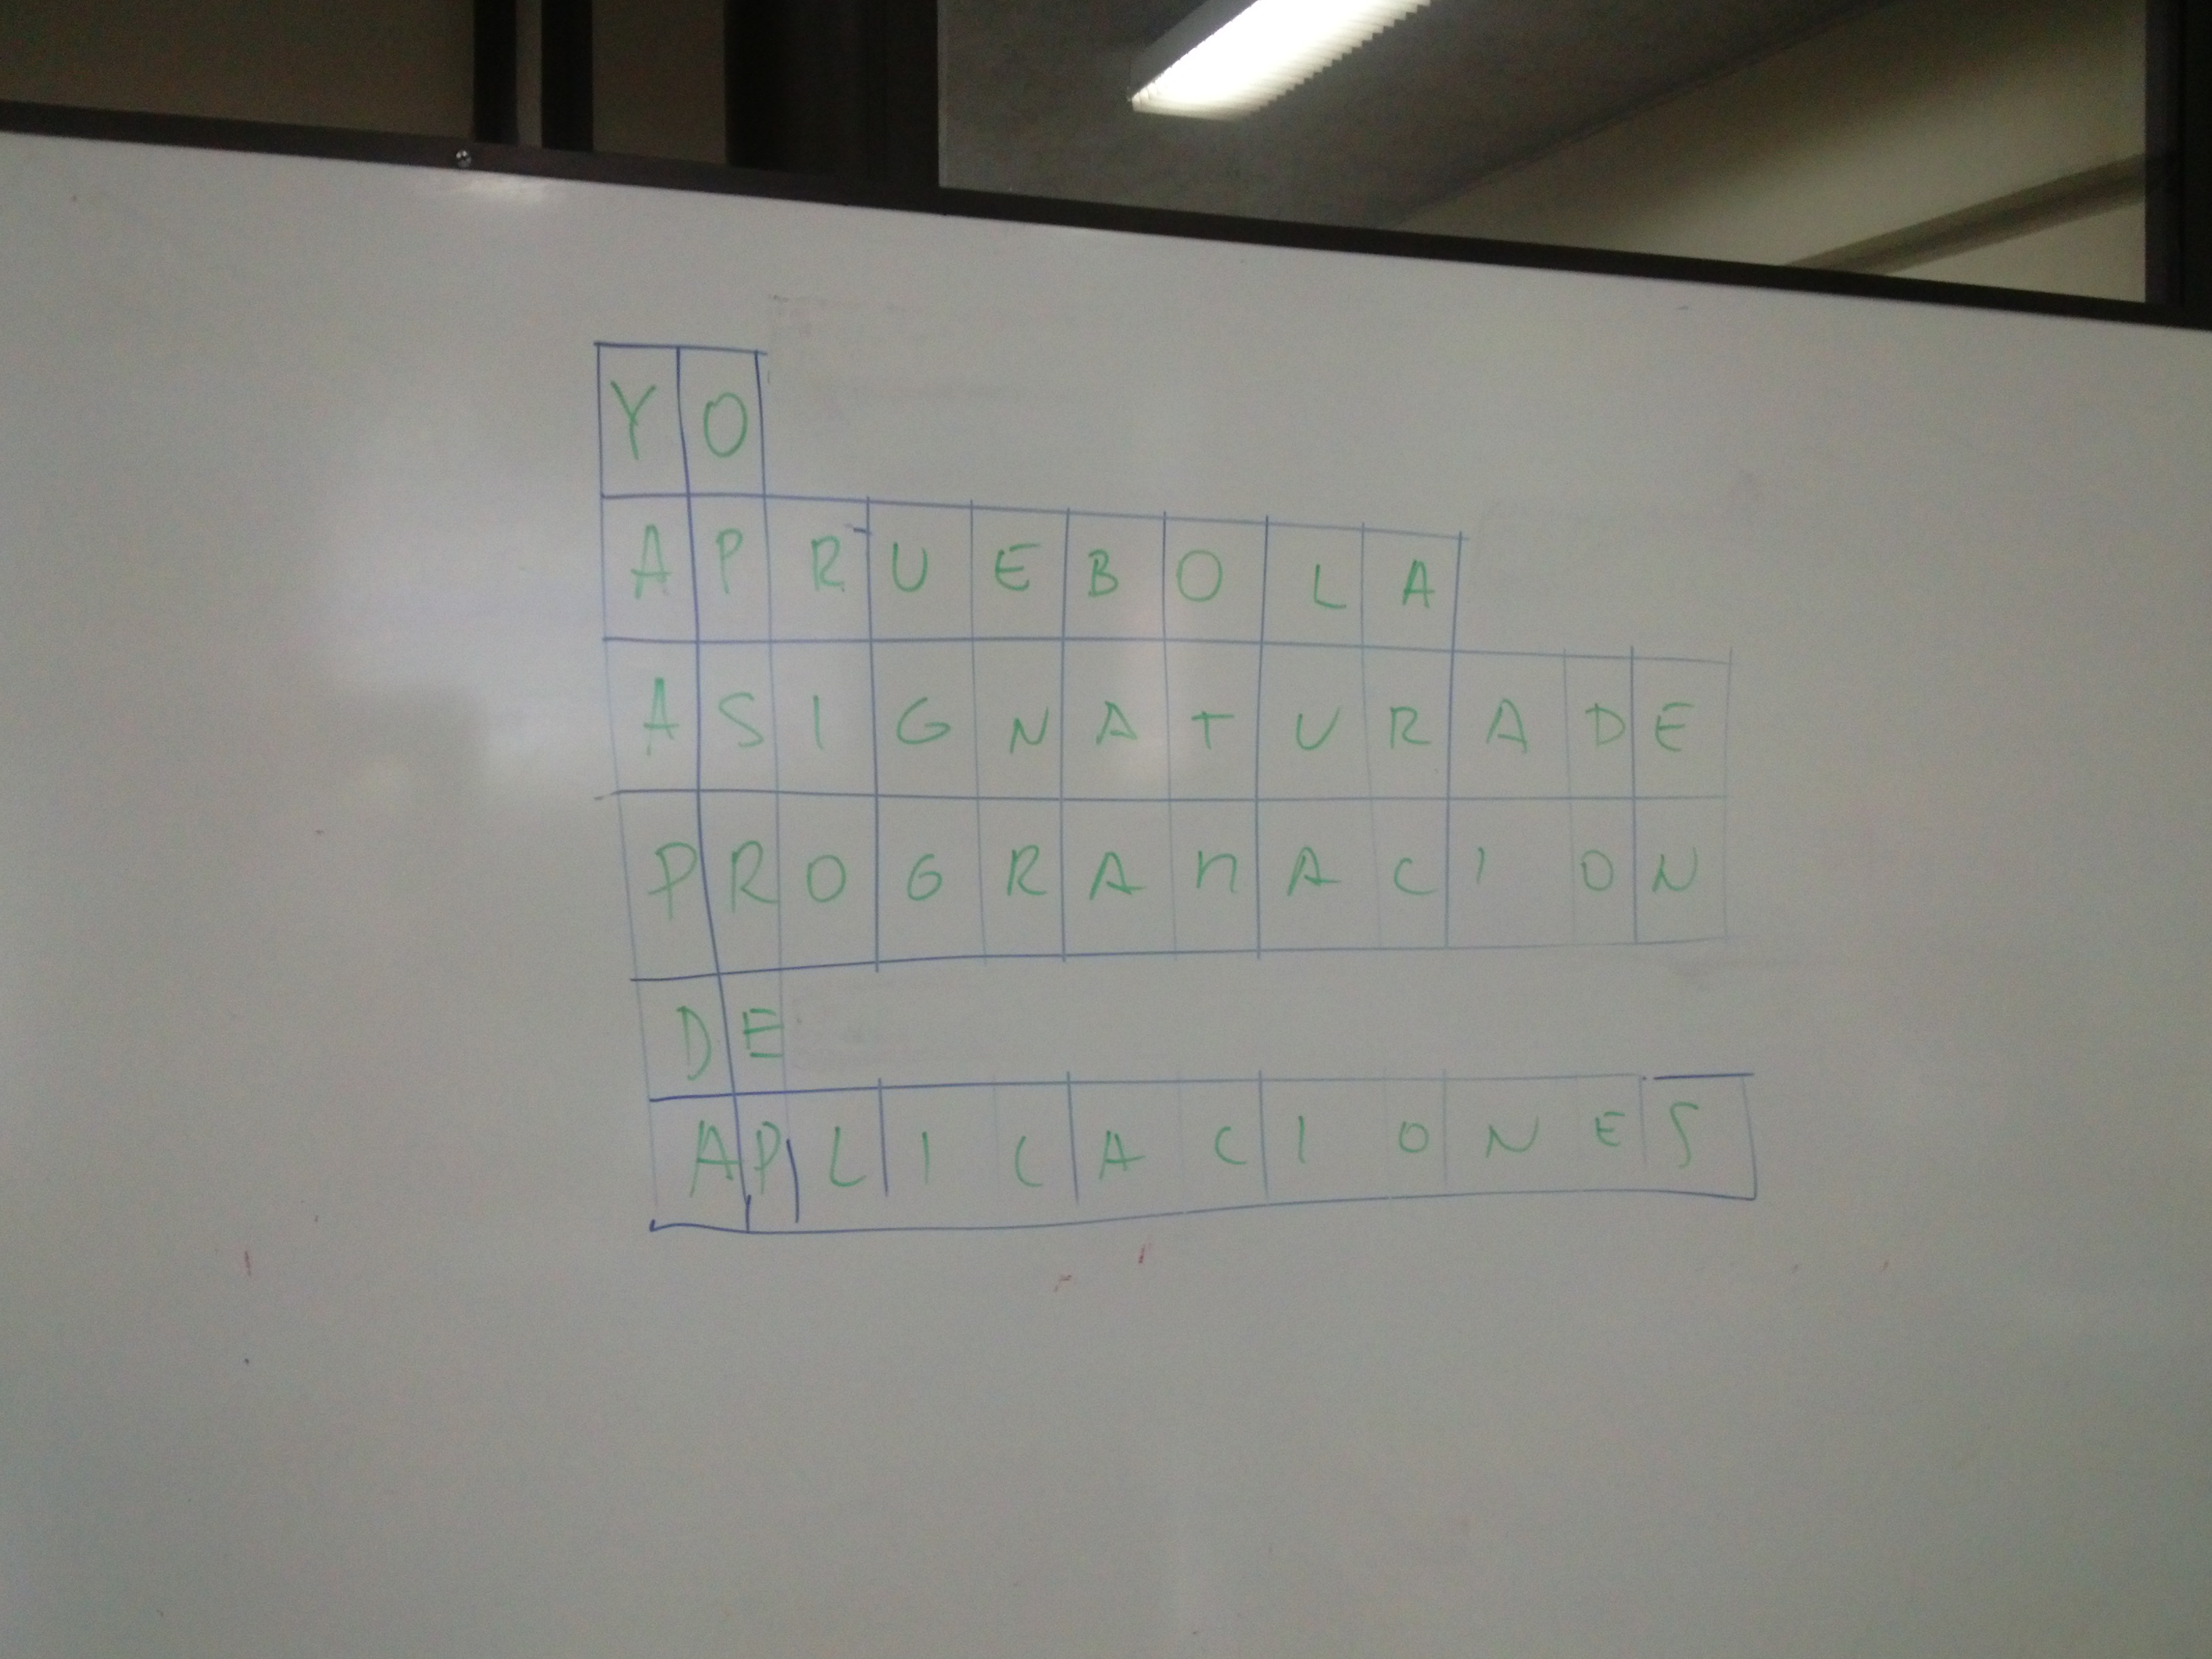 YO
APRUEBOLA
ASIGNATURADE
PROGRAMACION
DE
APLICACIONES